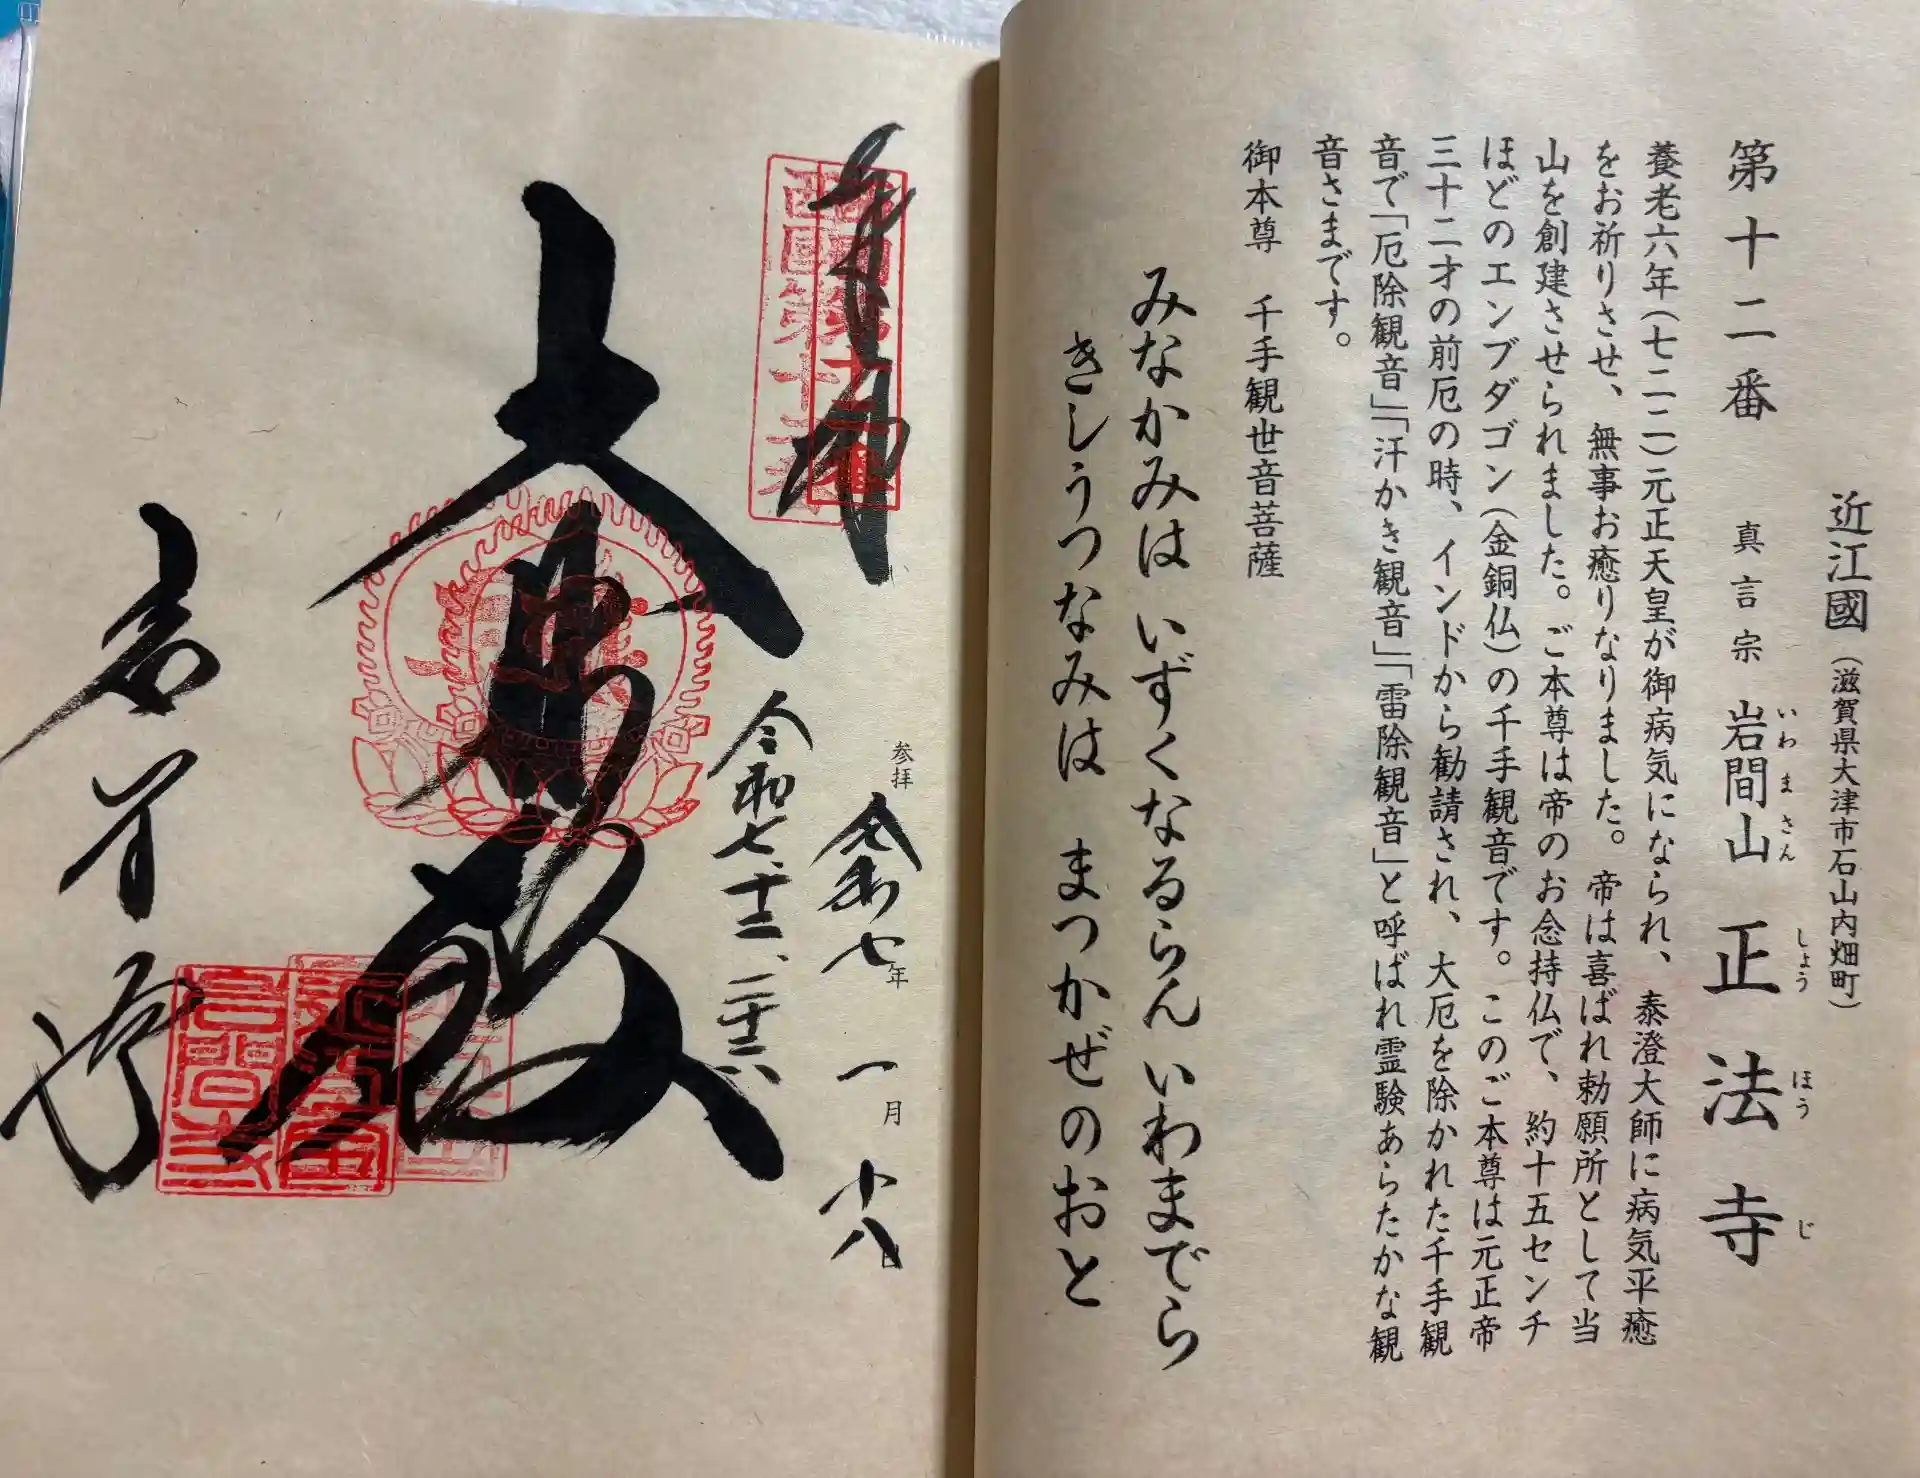 近江國（滋賀県大津市石山内畑町）
第十二番 真言宗 岩間山 正法寺
いわまさん しょうほうじ
養老六年（七二二）元正天皇が御病気になられ、泰澄大師に病気平癒
をお祈りさせ、無事お癒りなりました。帝は喜ばれ勅願所として当
山を創建させられました。ご本尊は帝のお念持仏で、約十五センチ
ほどのエンブダゴン（金銅仏）の千手観音です。このご本尊は元正帝
三十二才の前厄の時、インドから勧請され、大厄を除かれた千手観
音で「厄除観音」「汗かき観音」「雷除観音」と呼ばれ霊験あらたかな観
音さまです。
御本尊 千手観世音菩薩
みなかみは いずくなるらん いわまでら
きしうつなみは まつかぜのおと
奉拝
西國第十二番
参拝 令和七年 一月 十八日
令和七、十二、二十六
大悲殿
岩間寺
岩間寺